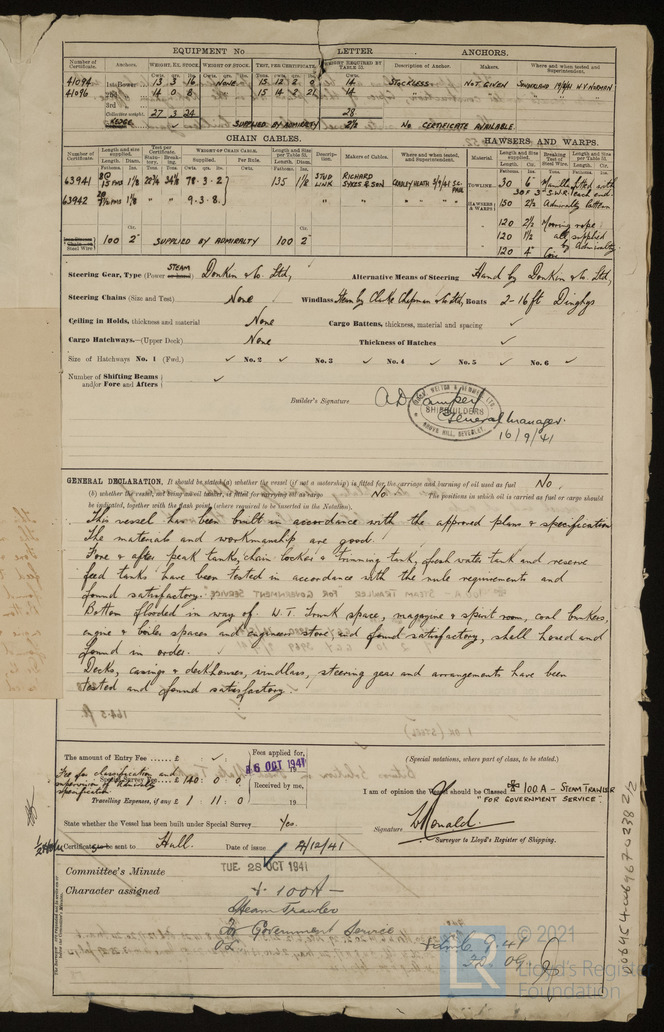 EQUIPMENT No LETTER ANCHORS.
Number of Certificate. Anchors. WEIGHT, EX. STOCK. WEIGHT OF STOCK. TEST, PER CERTIFICATE. WEIGHT REQUIRED BY TABLE 53. Description of Anchor. Makers. Where and when tested and Superintendent.
41094 1st Bower 13 3 16 NONE 15 12 2 14 STOCKLESS NOT GIVEN SUNDERLAND W.Y. NORMAN
41096 2nd 14 0 8 " 15 14 2 21 14 " "
3rd
Collective weight 27 3 24 28
KEDGE SUPPLIED BY ADMIRALTY 2½ NO CERTIFICATE AVAILABLE.
CHAIN CABLES. HAWSERS AND WARPS.
Number of Certificate. Length and size supplied. Test per Certificate. WEIGHT OF CHAIN CABLE. Length and Size per Table 53. Description. Makers of Cables. Where and when tested, and Superintendent. Material Length and Size supplied. Breaking Test of Steel Wire. Length and Size per Table 53.
63941 15 FMS 1⅛ 78 - 3 - 2 135 1⅛ STUD LINK RICHARD SYKES & SON CRADLEY HEATH TOWLINE 30 6"
63942 1⅛ " " 9 - 3 - 8 " " " HAWSERS & WARPS 150 2½ Admiralty
120 2½ Mooring rope
120 1½ all supplied
120 4" by Admiralty Coir
Steel Wire 100 2" SUPPLIED BY ADMIRALTY 100 2"
Steering Gear, Type (Power STEAM Donkin & Co Ltd, Alternative Means of Steering Hand by Donkin & Co Ltd,
Steering Chains (Size and Test) None Windlass Steam by Clarke Chapman & Co Ltd, Boats 2 - 16 ft Dinghys
Ceiling in Holds, thickness and material None Cargo Battens, thickness, material and spacing ✓
Cargo Hatchways.—(Upper Deck) None Thickness of Hatches ✓
Size of Hatchways No. 1 (Fwd.) ✓ No. 2 ✓ No. 3 ✓ No. 4 ✓ No. 5 ✓ No. 6 ✓
Number of Shifting Beams and/or Fore and Afters ✓
Builder's Signature
COOK, WELTON & GEMMELL LTD.
SHIPBUILDERS
GROVE HILL, BEVERLEY
General Manager.
16/9/41
GENERAL DECLARATION, It should be stated (a) whether the vessel (if not a motorship) is fitted for the carriage and burning of oil used as fuel No.
(b) whether the vessel, not being an oil tanker, is fitted for carrying oil as cargo No. The positions in which oil is carried as fuel or cargo should
be indicated, together with the flash point (where required to be inserted in the Notation).
This vessel has been built in accordance with the approved plans & specification
The materials and workmanship are good.
Fore & after peak tanks, chain locker & trimming tank, fresh water tank and reserve
feed tanks have been tested in accordance with the rule requirements and
found satisfactory.
Bottom flooded in way of W.T. trunk space, magazine & spirit room, coal bunkers,
engine & boiler spaces and engineers store and found satisfactory, shell hosed and
found in order.
Decks, casings & deckhouses, windlass, steering gear and arrangements have been
tested and found satisfactory.
The amount of Entry Fee ...... £ Fees applied for,
Fee for classification and supervision of Admiralty specification
Special Survey Fee £ 140 : 0 : 0 6 OCT 1941
Received by me,
Travelling Expenses, if any £ 1 : 11 : 0 19
(Special notations, where part of class, to be stated.)
I am of opinion the Vessel should be Classed ✠ 100A - STEAM TRAWLER
"FOR GOVERNMENT SERVICE"
State whether the Vessel has been built under Special Survey Yes.
Signature
Surveyor to Lloyd's Register of Shipping.
Certificate to be sent to Hull. Date of issue 2/12/41
Committee's Minute TUE. 28 OCT 1941
Character assigned + 100A —
Steam Trawler
For Government Service
9.41
© 2021
LR
Lloyd's Register
Foundation